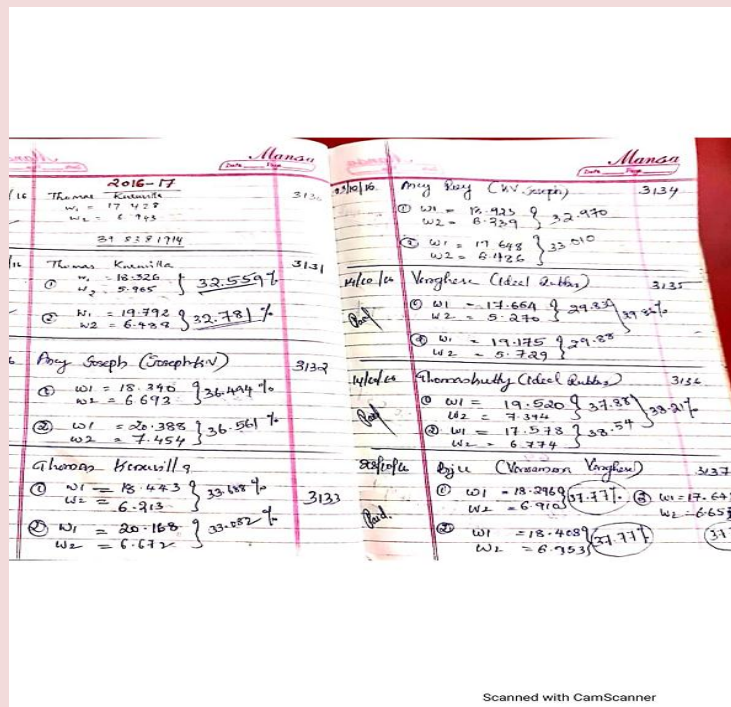 Mansa
Date Page
2016-17
/16 Thomas Kuruvilla 3130
W1 = 17.428
W2 = 6.943
39.8381714
Thomas Kuruvilla 3131
① W1 = 18.326
W2 = 5.965 } 32.559%
② W1 = 19.792
W2 = 6.488 } 32.781%
Ancy Joseph (Joseph K.V) 3132
① W1 = 18.340
W2 = 6.693 } 36.494%
② W1 = 20.388
W2 = 7.454 } 36.561%
Thomas Kuruvilla
① W1 = 18.443
W2 = 6.213 } 33.688% 3133
② W1 = 20.168
W2 = 6.672 } 33.082%
Mansa
Date Page
23/10/16 Ancy Roy (K.V. Joseph) 3134
① W1 = 18.923
W2 = 6.239 } 32.970
② W1 = 19.648
W2 = 6.486 } 33.010
Varghese (Ideal Rubber) 3135
① W1 = 17.664
W2 = 5.270 } 29.83
Paid
② W1 = 19.175
W2 = 5.729 } 29.88
Thomaskutty (Ideal Rubber)
① W1 = 19.520
W2 = 7.394 } 37.88
38.21%
Paid
② W1 = 17.578
W2 = 6.774 } 38.54
Biju (Varghese) 3137
① W1 = 18.296
W2 = 6.910 } 37.77% ③ W1 = 17.64
W2 = 6.65
Paid.
② W1 = 18.408
W2 = 6.953 } 37.77%
Scanned with CamScanner